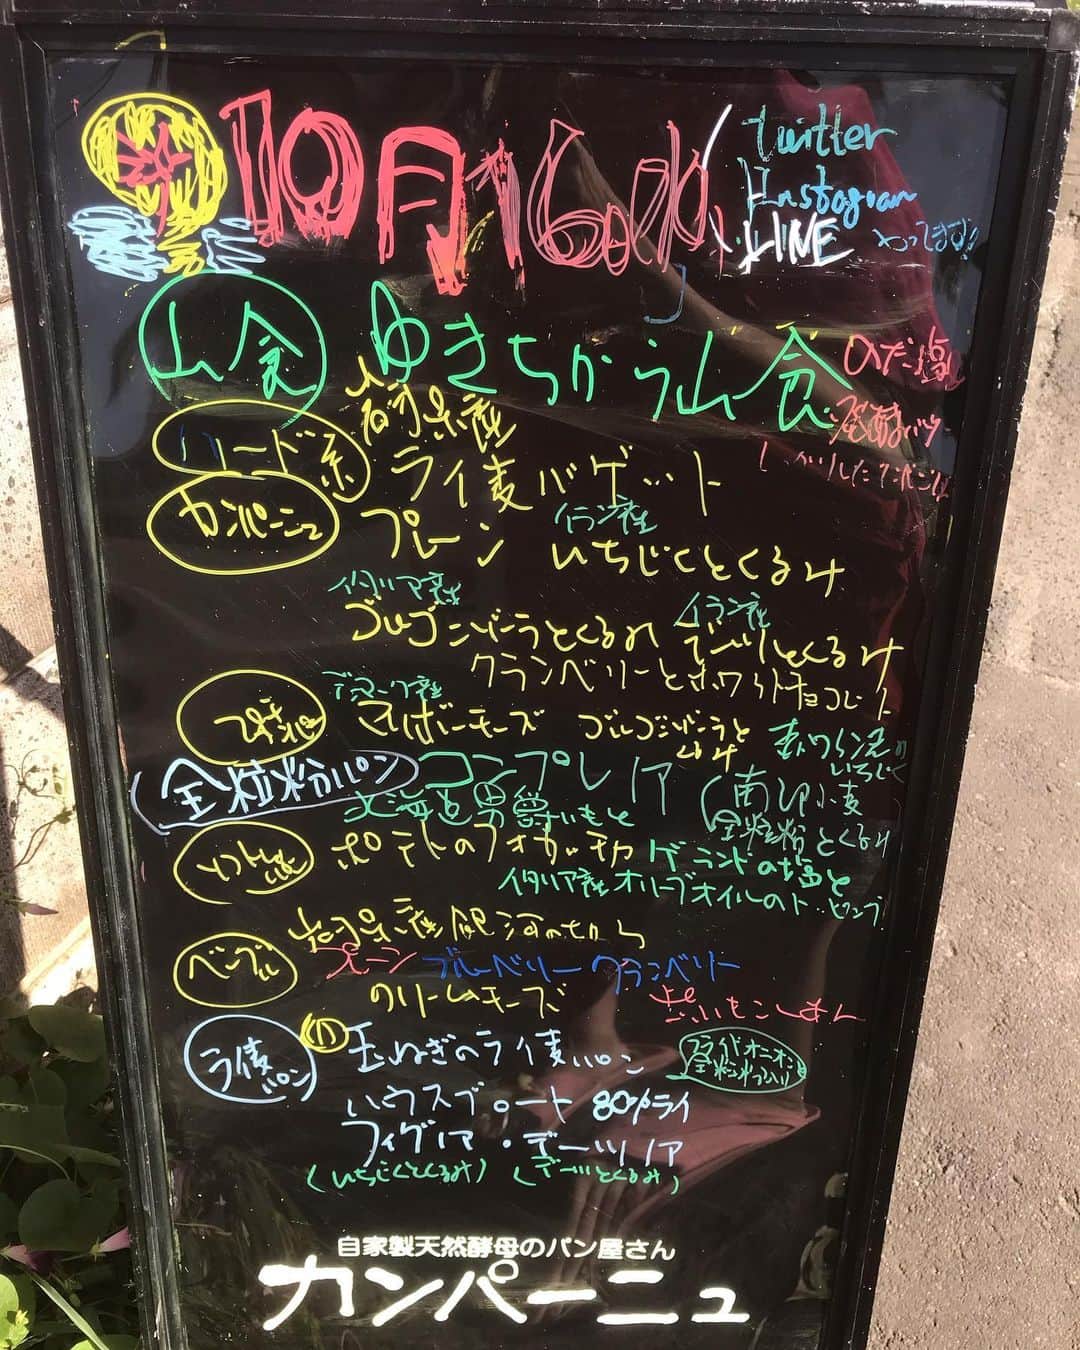 10月16日(水)
twitter
Instagram
LINE やってます!!
山食 ゆきちから山食 のだ塩
発酵バター
ハード系 岩手県産
ライ麦バゲット
カンパーニュ プレーン イラン産
いちじくとくるみ
イタリア産 イラン産
ゴルゴンゾーラとくるみ デーツとくるみ
クランベリーとホワイトチョコレート
プチパン デンマーク産
マリボーチーズ ゴルゴンゾーラと
くるみ
赤ワイン煮の
いちじく
全粒粉パン コンプレ ノア (南部小麦
全粒粉とくるみ
北海道男爵いもと
ソフト ポテトのフォカッチャ ゲランドの塩と
イタリア産オリーブオイルのトッピング
岩手県産銀河のちから
ベーグル プレーン ブルーベリー クランベリー
クリームチーズ 紫いもこしあん
ライ麦パン 玉ねぎのライ麦パン フライドオニオンと
全粒粉入り
ハウスブロート 80%ライ
フィグノア・デーツノア
(いちじくとくるみ) (デーツとくるみ)
自家製天然酵母のパン屋さん
カンパーニュ